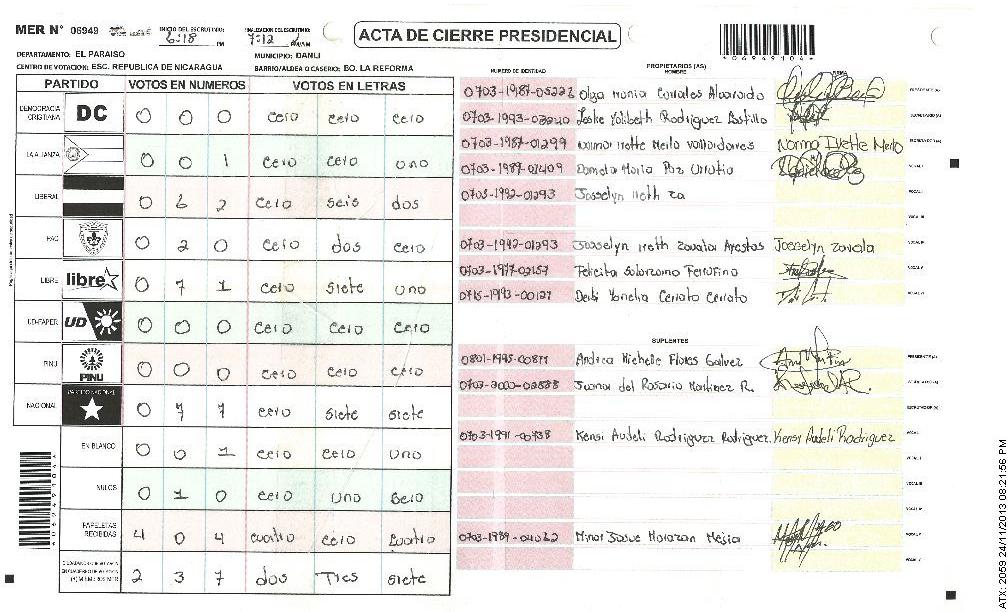 MER N° 06949 INICIO DEL ESCRUTINIO: 6:18 PM FINALIZACION DEL ESCRUTINIO: 7:12 PM/AM
ACTA DE CIERRE PRESIDENCIAL
*06949104*
DEPARTAMENTO: EL PARAISO MUNICIPIO: DANLI
CENTRO DE VOTACION: ESC. REPUBLICA DE NICARAGUA BARRIO/ALDEA O CASERIO: BO. LA REFORMA
PARTIDO VOTOS EN NUMEROS VOTOS EN LETRAS
DEMOCRACIA CRISTIANA DC 0 0 0 cero cero cero
LA ALIANZA 0 0 1 cero cero uno
LIBERAL 0 6 2 cero seis dos
PAC 0 2 0 cero dos cero
LIBRE libre 0 7 1 cero siete uno
UD-FAPER UD 0 0 0 cero cero cero
PINU PINU 0 0 0 cero cero cero
NACIONAL PARTIDO NACIONAL 0 7 7 cero siete siete
EN BLANCO 0 0 1 cero cero uno
NULOS 0 1 0 cero uno cero
PAPELETAS RECIBIDAS 4 0 4 cuatro cero cuatro
(+) MIEMBROS MER 2 3 7 dos Tres siete
NUMERO DE IDENTIDAD PROPIETARIOS (AS) NOMBRE FIRMA
0703-1987-05222 Olga Maria Corrales Alvarado
0703-1993-03240 Leslie Yolibeth Rodriguez Bastillo
0703-1987-01299 Norma Ivette Merlo Valladares Norma Ivette Merlo
0703-1989-01409 Pamela Maria Paz Urrutia
0703-1992-01293 Josselyn Iveth Za
0703-1992-01293 Josselyn Iveth Zavala Ayestas Josselyn Zavala
0703-1977-02157 Felicita Solorzano Ferrufino
0715-1993-00127 Derbi Yamelia Cerrato Cerrato
SUPLENTES
0801-1995-00877 Andrea Michelle Flores Galvez
0703-2000-02588 Juana del Rosario Martinez R.
0703-1991-00738 Kensi Audeli Rodriguez Rodriguez Kensy Audeli Rodriguez
0703-1989-04022 Minor Josue Morazan Mejia
*06949104*
ATX: 2059 24/11/2013 08:21:56 PM